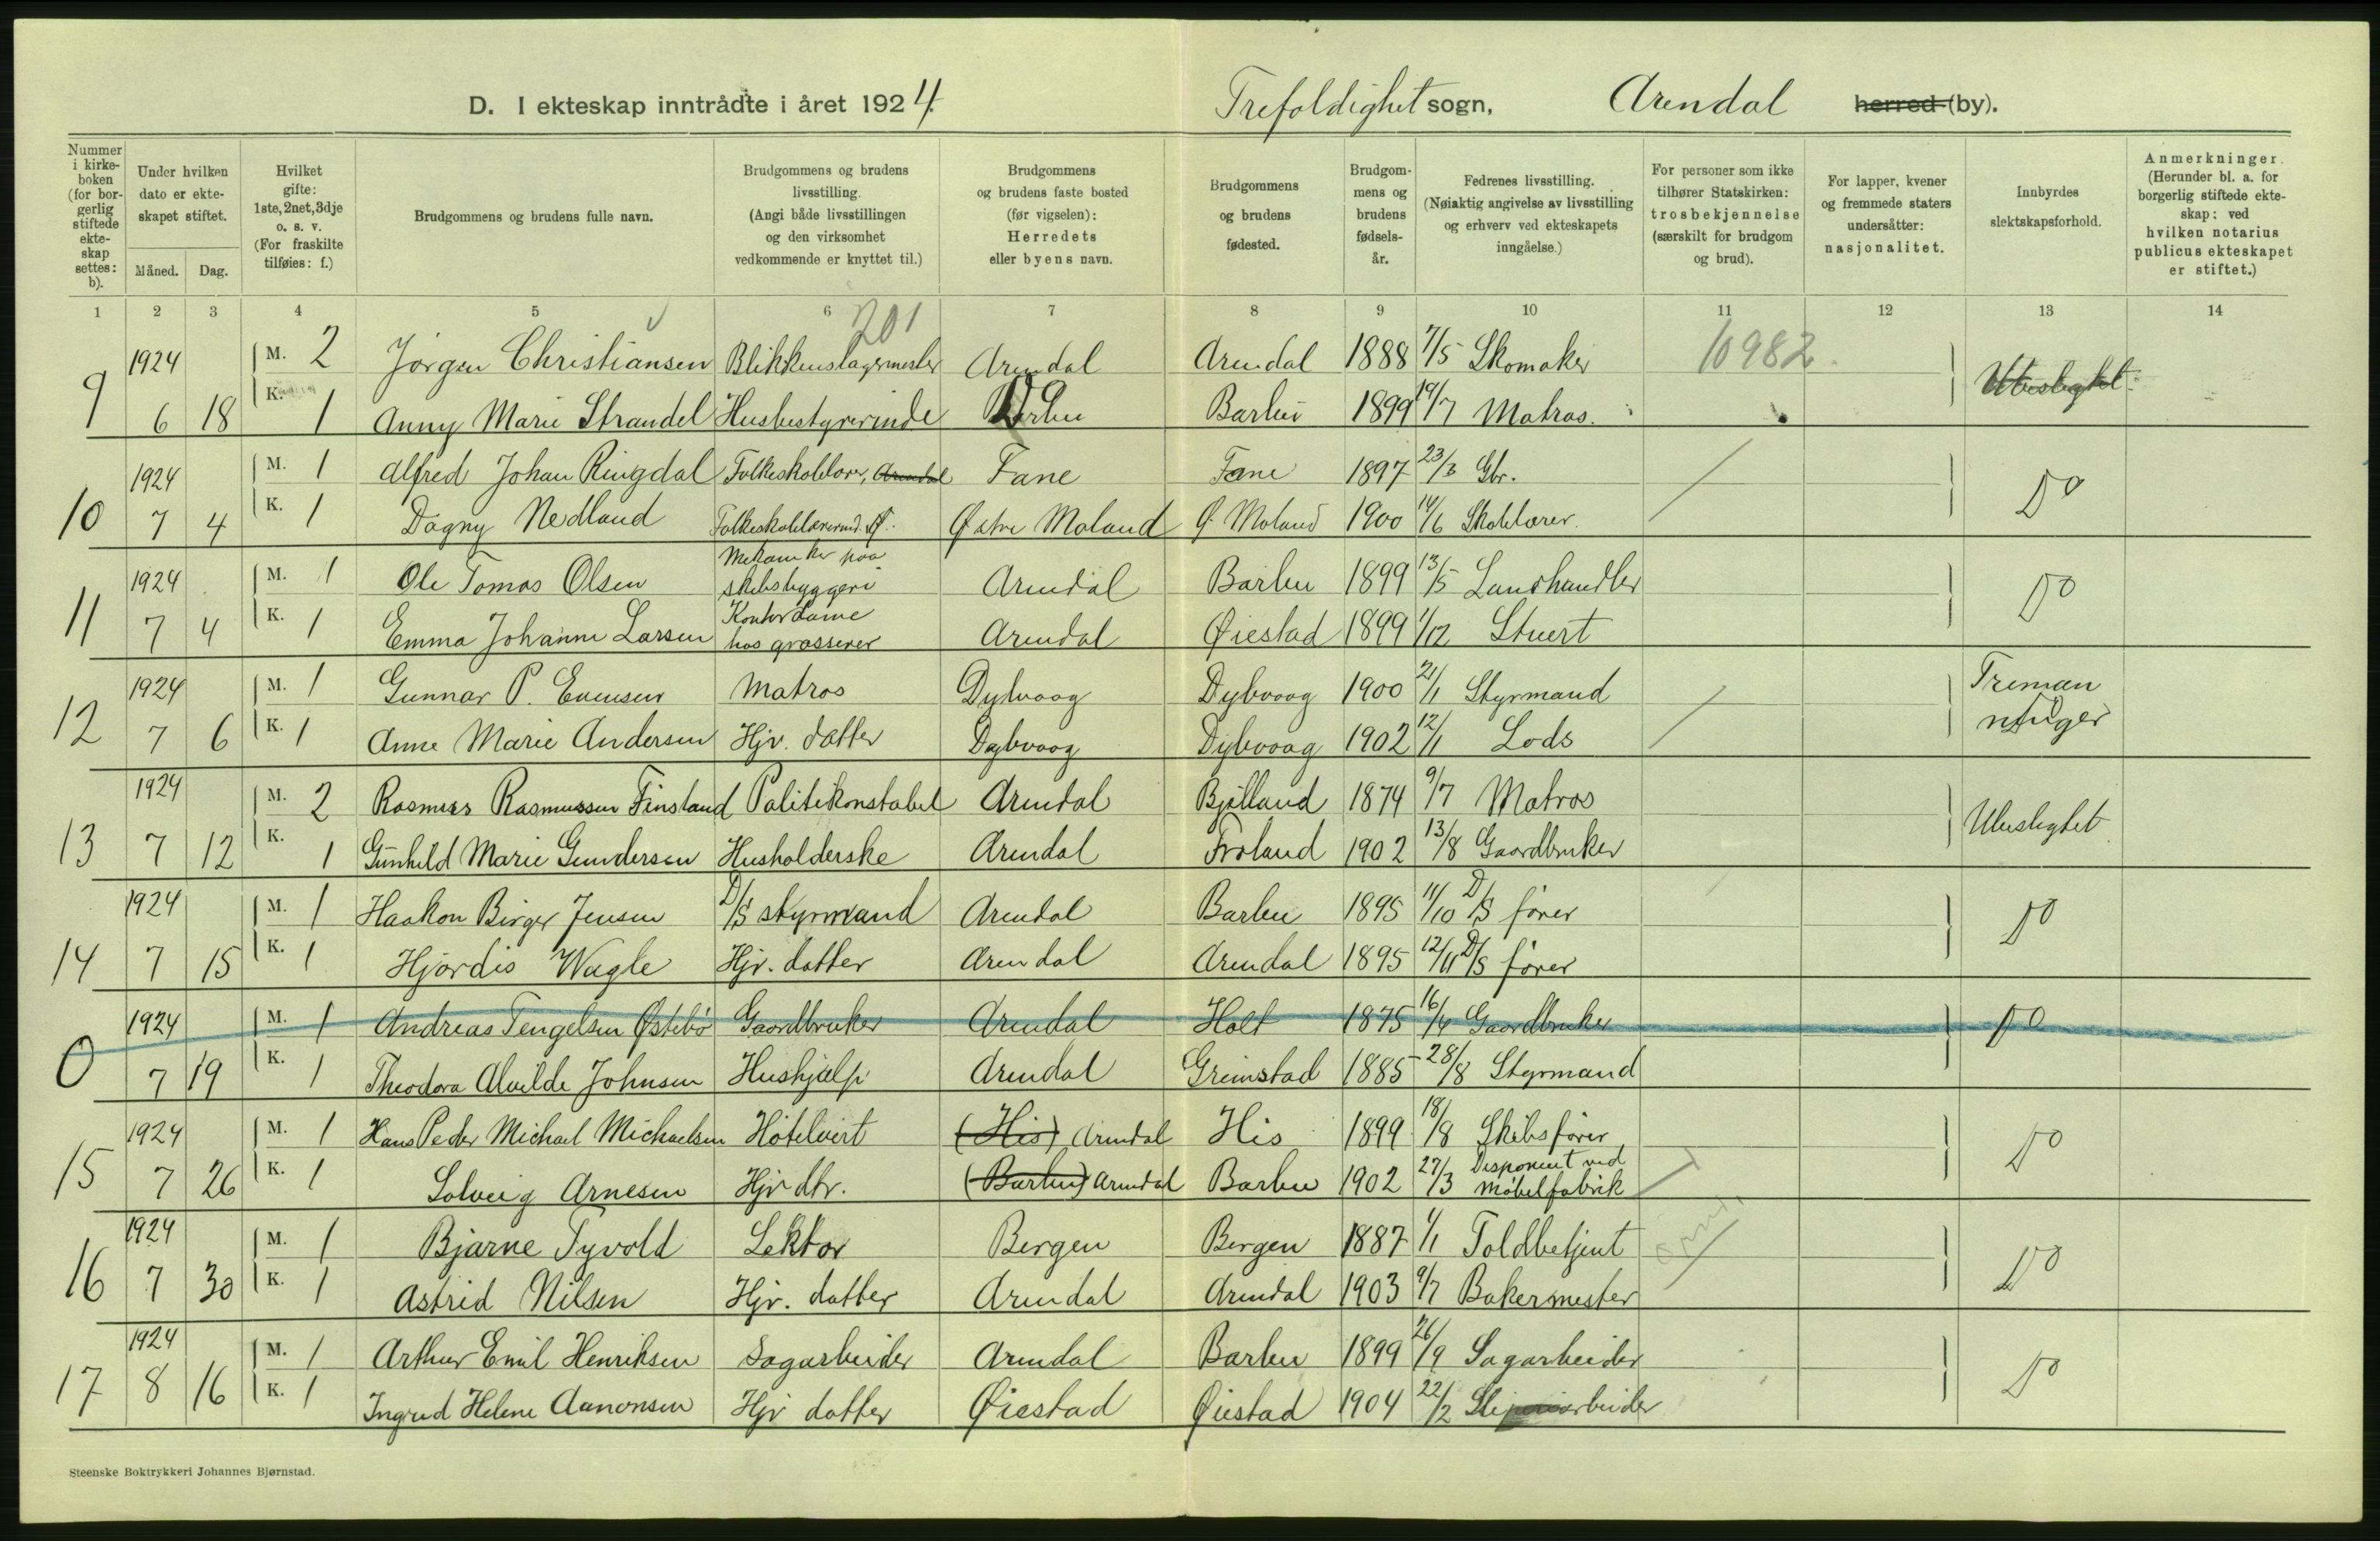 D. I ekteskap inntrådte i året 1924.
Trefoldighet sogn, Arendal herred (by).
Nummer i kirkeboken (for borgerlig stiftede ekteskap settes: b).
Under hvilken dato er ekteskapet stiftet.
Måned. Dag.
Hvilket gifte: 1ste, 2net, 3dje o. s. v. (For fraskilte tilføies: f.)
Brudgommens og brudens fulle navn.
Brudgommens og brudens livsstilling. (Angi både livsstillingen og den virksomhet vedkommende er knyttet til.)
Brudgommens og brudens faste bosted (før vigselen): Herredets eller byens navn.
Brudgommens og brudens fødested.
Brudgommens og brudens fødselsår.
Fedrenes livsstilling. (Nøiaktig angivelse av livsstilling og erhverv ved ekteskapets inngåelse.)
For personer som ikke tilhører Statskirken: trosbekjennelse (særskilt for brudgom og brud).
For lapper, kvener og fremmede staters undersåtter: nasjonalitet.
Innbyrdes slektskapsforhold.
Anmerkninger. (Herunder bl. a. for borgerlig stiftede ekteskap: ved hvilken notarius publicus ekteskapet er stiftet.)
1 2 3 4 5 6 7 8 9 10 11 12 13 14
201
1924 M. 2 Jørgen Christiansen Blikkenslagermester Arendal Arendal 1888 7/5 Skomaker 10982
9 6 18 K. 1 Anny Marie Strandel Husbestyrerinde Barbu Barbu 1899 19/7 Matros. Ubeslegtet
1924 M. 1 Alfred Johan Ringdal Folkeskolelærer, Arendal Fane Fane 1897 23/3 Gbr.
10 7 4 K. 1 Dagny Nedland Folkeskolelærerind. Østre Moland Ø. Moland 1900 14/6 Skolelærer. Do
1924 M. 1 Ole Tomas Olsen Mekaniker paa skibsbyggeri Arendal Barbu 1899 13/5 Landhandler
11 7 4 K. 1 Emma Johanne Larsen Kontordame hos grosserer Arendal Øiestad 1899 1/12 Stuert Do
1924 M. 1 Gunnar P. Evensen Matros Dybvaag Dybvaag 1900 21/1 Styrmand
12 7 6 K. 1 Anne Marie Andersen Hjv. datter Dybvaag Dybvaag 1902 12/1 Lods Tremanninger
1924 M. 2 Rasmus Rasmussen Finsland Politikonstabel Arendal Bjelland 1874 9/7 Matros
13 7 12 K. 1 Gunhild Marie Gundersen Husholderske Arendal Froland 1902 13/8 Gaardbruker Ubeslegtet
1924 M. 1 Haakon Birger Jensen D/S styrmand Arendal Barbu 1895 11/10 D/S fører
14 7 15 K. 1 Hjørdis Wagle Hjv. datter Arendal Arendal 1895 12/11 D/S fører Do
1924 M. 1 Andreas Tengelsen Østebø Gaardbruker Arendal Holt 1875 16/4 Gaardbruker Do
0 7 19 K. 1 Theodora Alvilde Johnsen Hushjælp Arendal Grimstad 1885 28/8 Styrmand
1924 M. 1 Hans Peder Michael Michaelsen Hotelvert (His) Arendal His 1899 18/8 Skibsfører
15 7 26 K. 1 Solveig Arnesen Hjv dtr. (Barbu) Arendal Barbu 1902 27/3 Disponent ved møbelfabrik Do
1924 M. 1 Bjarne Tyvold Lektor Bergen Bergen 1887 1/1 Toldbetjent
16 7 30 K. 1 Astrid Nilsen Hjv. datter Arendal Arendal 1903 9/7 Bakermester Do
1924 M. 1 Arthur Emil Henriksen Sagarbeider Arendal Barbu 1899 26/9 Sagarbeider
17 8 16 K. 1 Ingrid Helene Aanonsen Hjv datter Øiestad Øiestad 1904 22/2 Do
Steenske Boktrykkeri Johannes Bjørnstad.